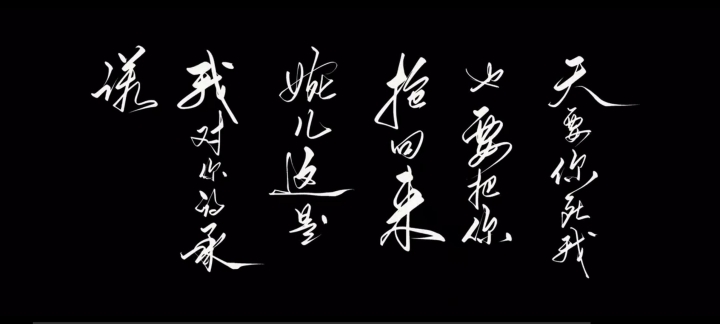 天要你死我
也要把你
抢回来
婉儿这是
我对你的承
诺